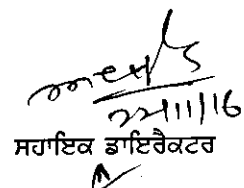 22/11/16
ਸਹਾਇਕ ਡਾਇਰੈਕਟਰ